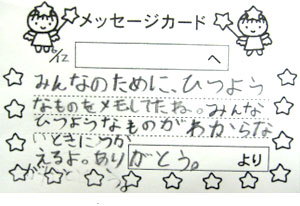 メッセージカード
6/12
へ
みんなのために、ひつよう
なものをメモしてたね。みんな
ひつようなものがわからな
いときにつか
えるよ。ありがとう。
より